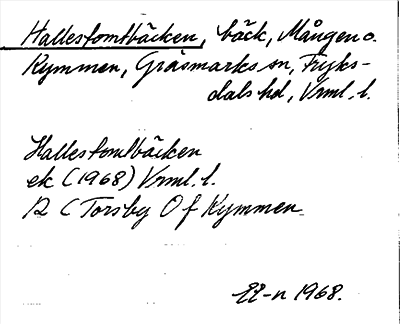 Hallestomtbäcken, bäck, Mången o.
Kymmen, Gräsmarks sn, Fryks-
dals hd, Vrml. l.
Hallestomtbäcken
ek (1968) Vrml. l.
12 C Torsby O f Kymmen.
-n 1968.